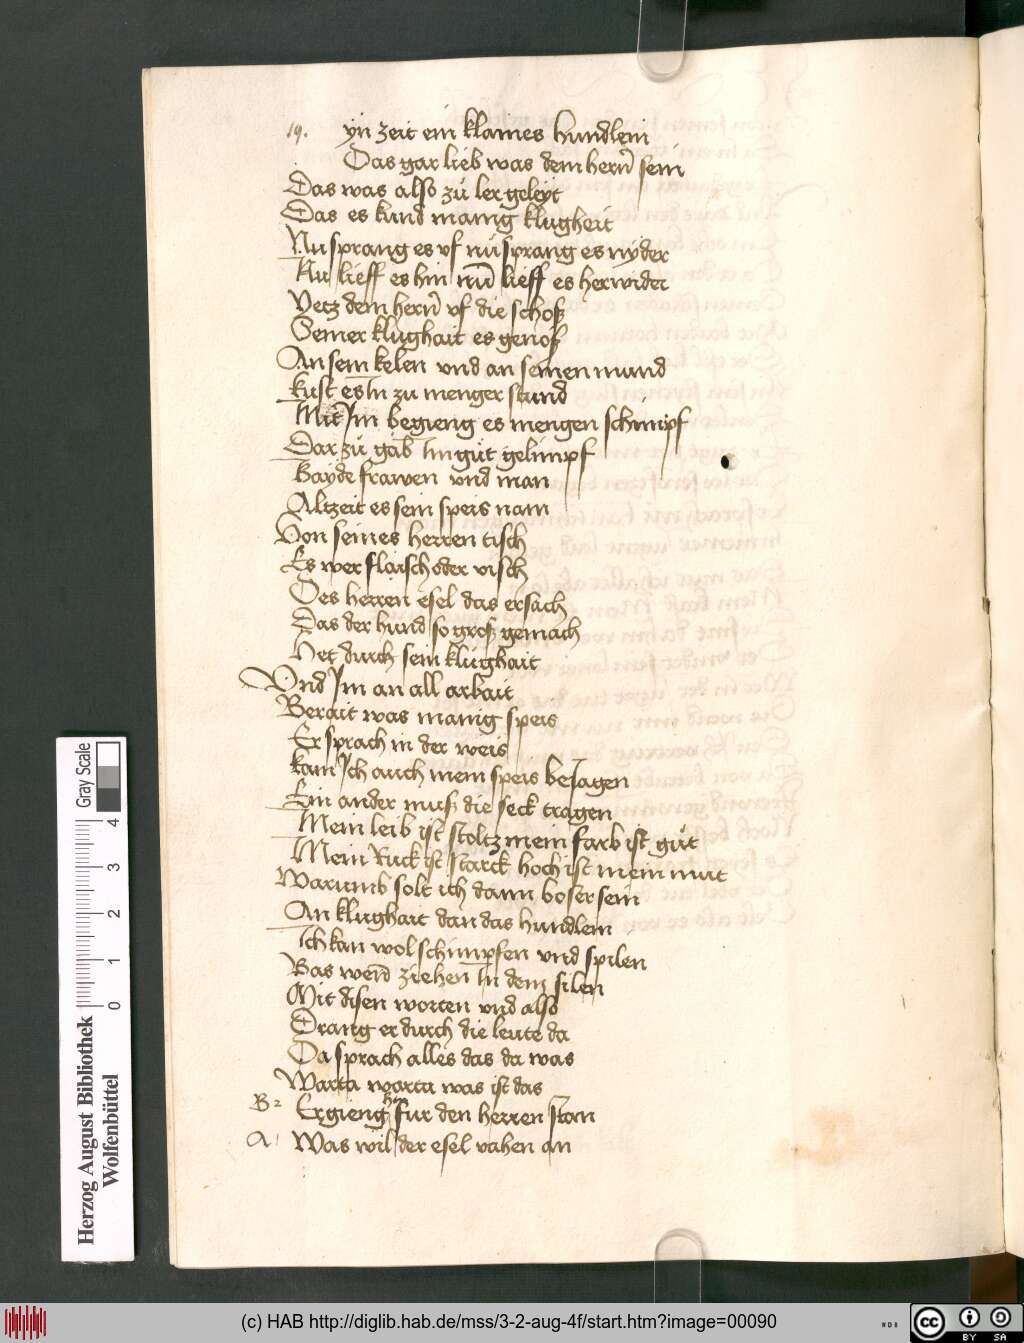 19. yn zeit ein klaines hundlein
Das gar lieb was dem hern̄ sein
Das was also zů ler geleyt
Das es kund manig klugheit
Nu sprang es vf nu sprang es nyder
Nu lieff es hin nu lieff es herwider
Yetz dem hern̄ vf die schoß
Seiner klughait es genoß
An sein kelen vnd an seinen mund
kust es In zu menger stund
Mit Im begieng es mengen schimpf
Dar zů gab Im gůt gelimpf
Bayde frawen vnd man
Altzeit es sein speis nam
Von seines herren tisch
Es wer flaisch oder visch
Des herren esel das ersach
Das der hund so groß gemach
Het durch sein klughait
Vnd Im an all arbait
Berait was manig speis
Er sprach in der weis
kam Ich auch mein speis beJagen
Ein ander muß die seck tragen
Mein leib ist stoltz mein farb ist gůt
Mein Ruck ist starck hoch ist mein mut
Warumb solt ich dann boser sein
An klughait dan das hundlein
Ich kan wol schimpfen vnd spilen
Bas wend ziehen In dem silen
Mit disen worten vnd also
Drang er durch die leute da
Da sprach alles das da was
Warta warta was ist das
B 2 Er gieng hin fur den herren stan
A 1 Was wil der esel vahen an
Herzog August Bibliothek
Wolfenbüttel
0 1 2 3 4
Gray Scale
(c) HAB http://diglib.hab.de/mss/3-2-aug-4f/start.htm?image=00090
WDB
cc BY SA